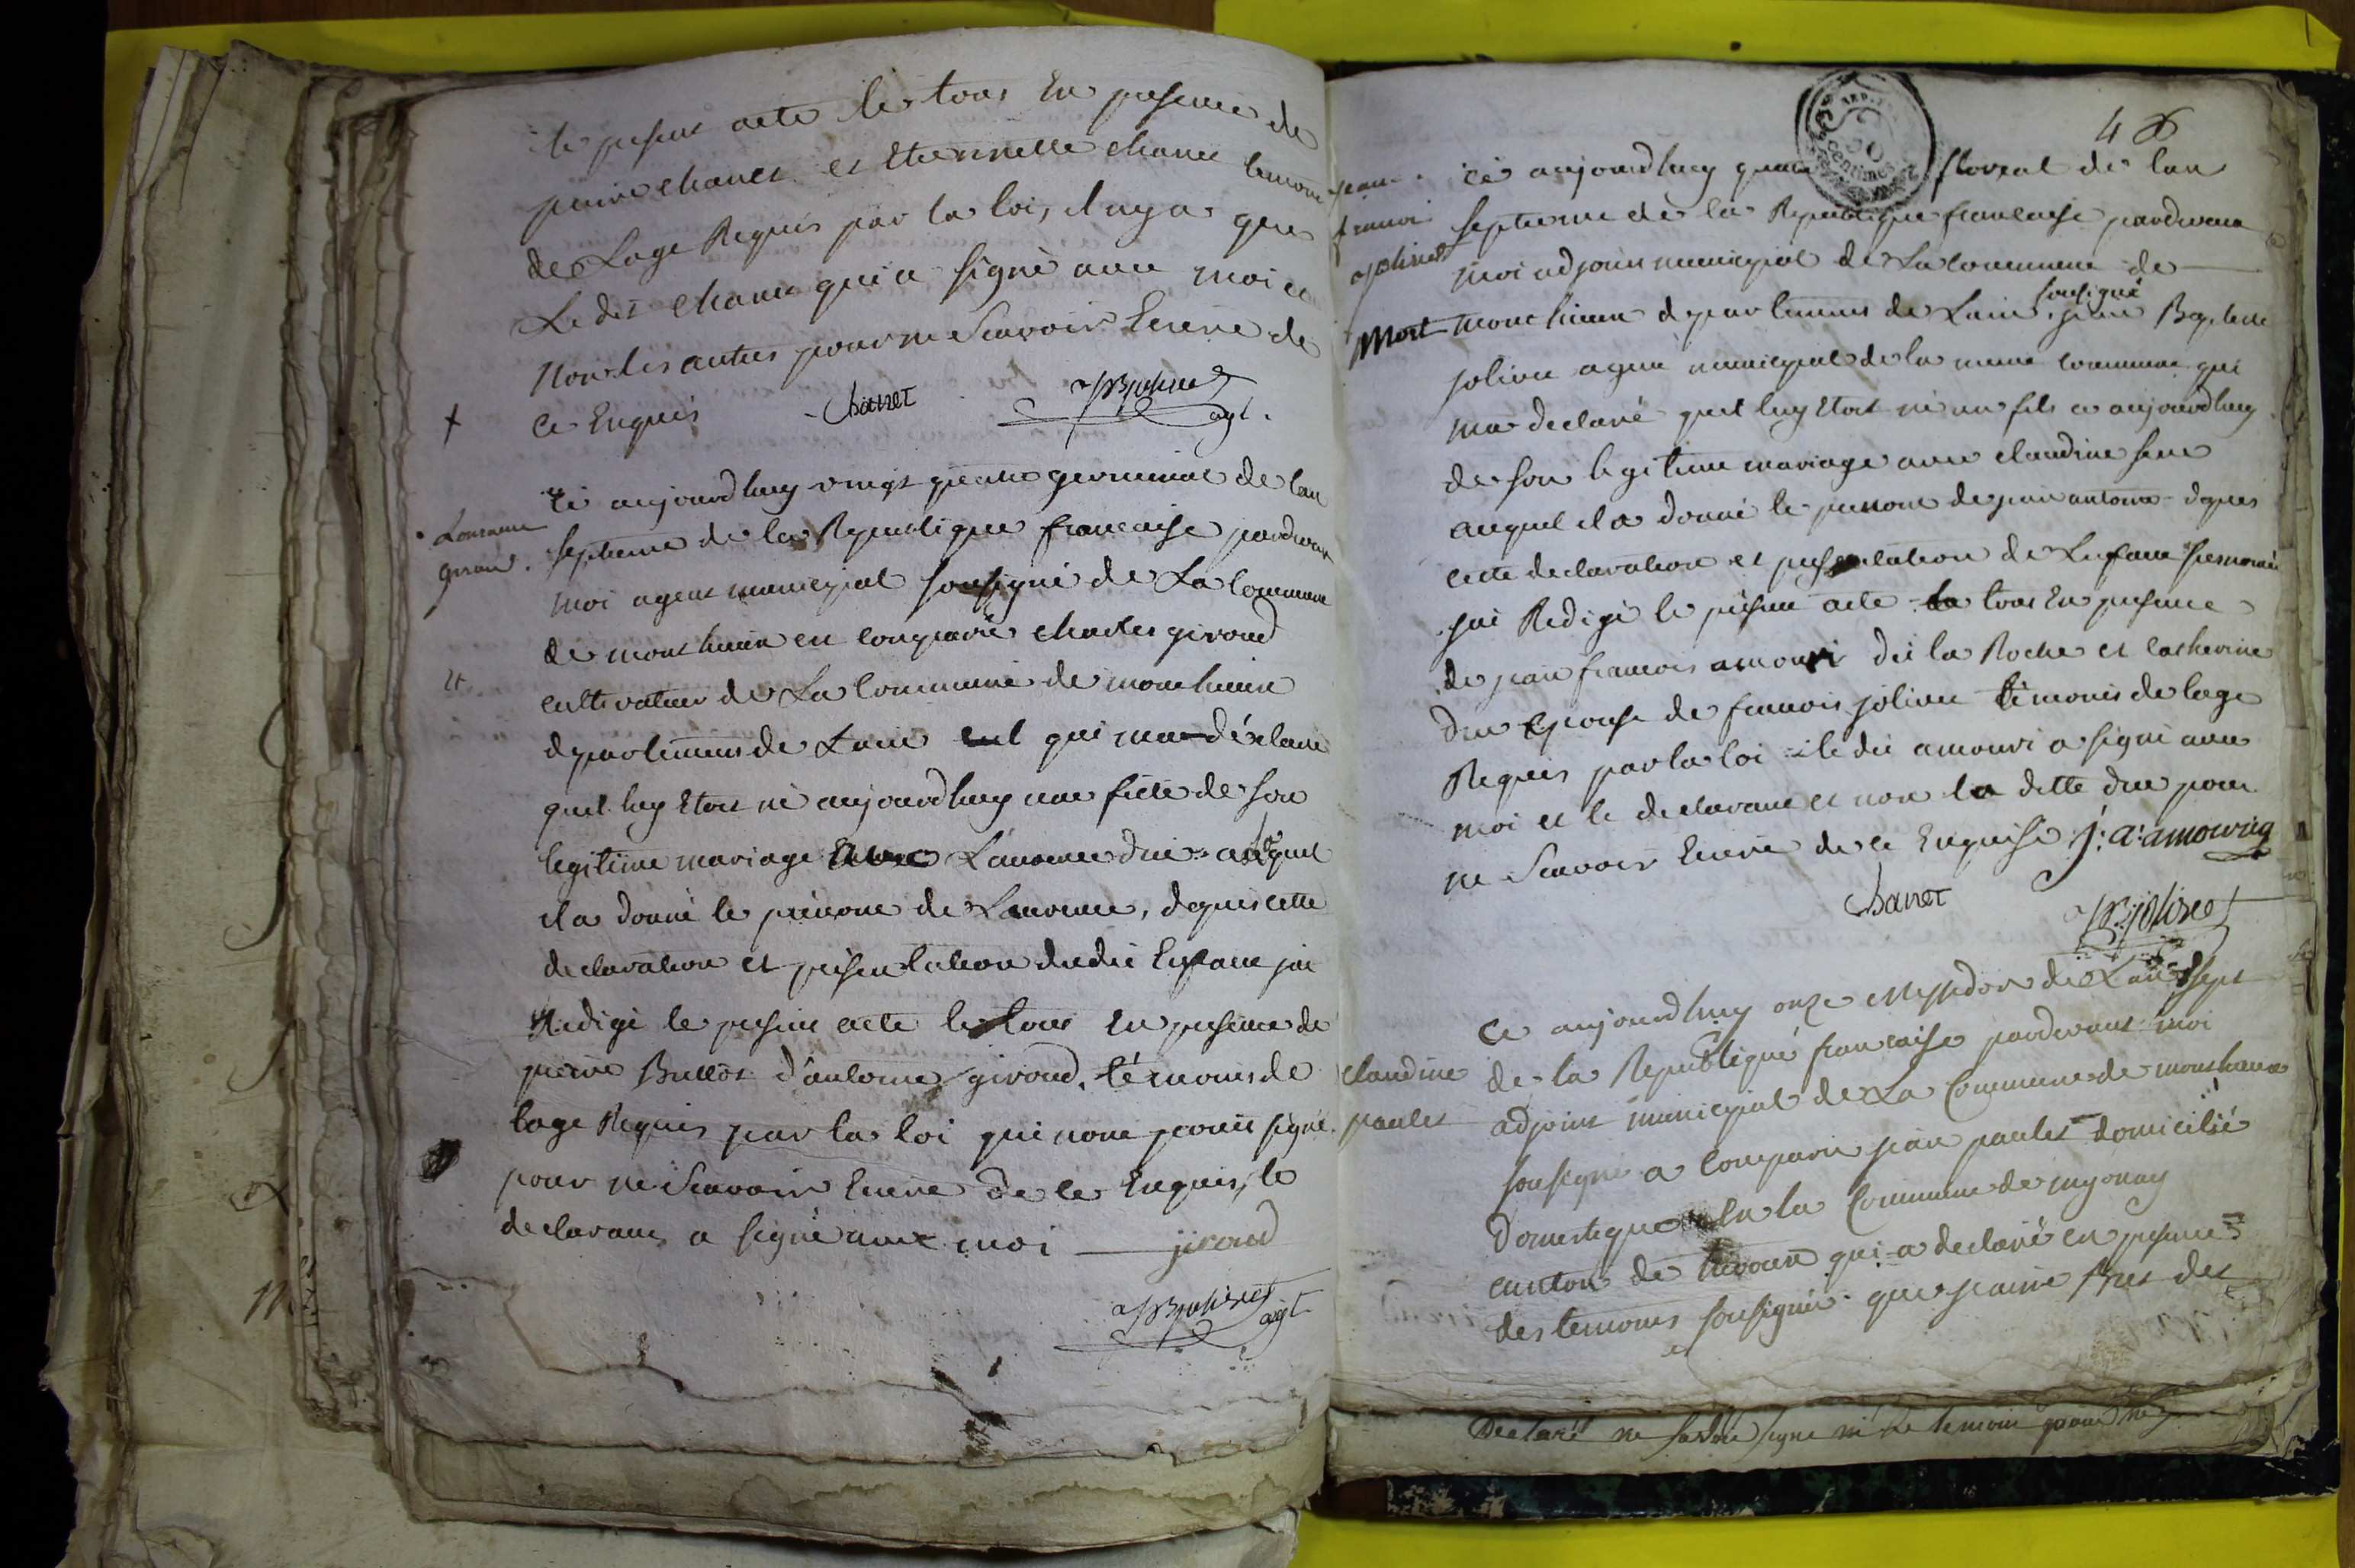 le present acte le tous en presence de
pierre chanet et Etiennette chanet temoins
de Lage Requis par la loi, il ny a que
Le dit chanet qui a signé avec moi et
Non les autres pour ne Scavoir Ecrire de
ce Enquis Chanet JBJolivet agt.
Laurence giroud.
Ce aujourdhuy vingt quatre germinal de lan
septieme de la Republique francaise pardevant
moi agent municipal sousigné de La Commune
de monthieux en comparu charles giroud
cultivateur de La Commune de monthieux
departement de Lain qui ma déclaré
quil luy Etoit né aujourdhuy une fille de son
legitime mariage avec Laurence Due auquel
il a donné le prénom de Laurence, depuis cette
declaration et présentation dudit Enfant jai
Redigé le present acte le tous en presence de
pierre Buttor d'antoine giroud, témoins de
lage Requis par la loi qui nont point signé
pour ne Scavoir Ecrire de ce Enquis, le
declarant a signé avec moi giroud
JBJolivet agt
4
REP. 50 centimes
jean francoi jolivet
Mort
Ce aujourdhuy floreal de lan
septieme de la Republique francaise pardevant
moi adjoint municipal de La commune de
monthieux departement de Lain sousigné jean Baptiste
jolivet agent municipal de la meme commune qui
ma declaré quil luy Etoit né un fils ce aujourdhuy
de son legitime mariage avec claudine
auquel il a donné le prenom de jean antoine depuis
cette declaration et presentation de Lenfant
jai Redigé le present acte le tous En presence
de jean francois amouri de la Roche et catherine
Due Epouse de francois jolivet témoins de lage
Requis par la loi le dit amouri a signé avec
moi et le declarant et non la ditte Due pour
ne Scavoir Ecrire de ce Enquise j: a: amourig
Chanet JBJolivet
claudine paulet
Ce aujourdhuy onze Messidor de Lan Sept
de la Republique francaise pardevant moi
adjoint municipal de La Commune de monthieux
sousigné a comparu jean paulet domicilié
Domestique en la Commune de mionay
canton de trevoux qui a declaré en presence
des temoins sousignés que jeanne des
Declaré ne signé ni le temoin pour ne